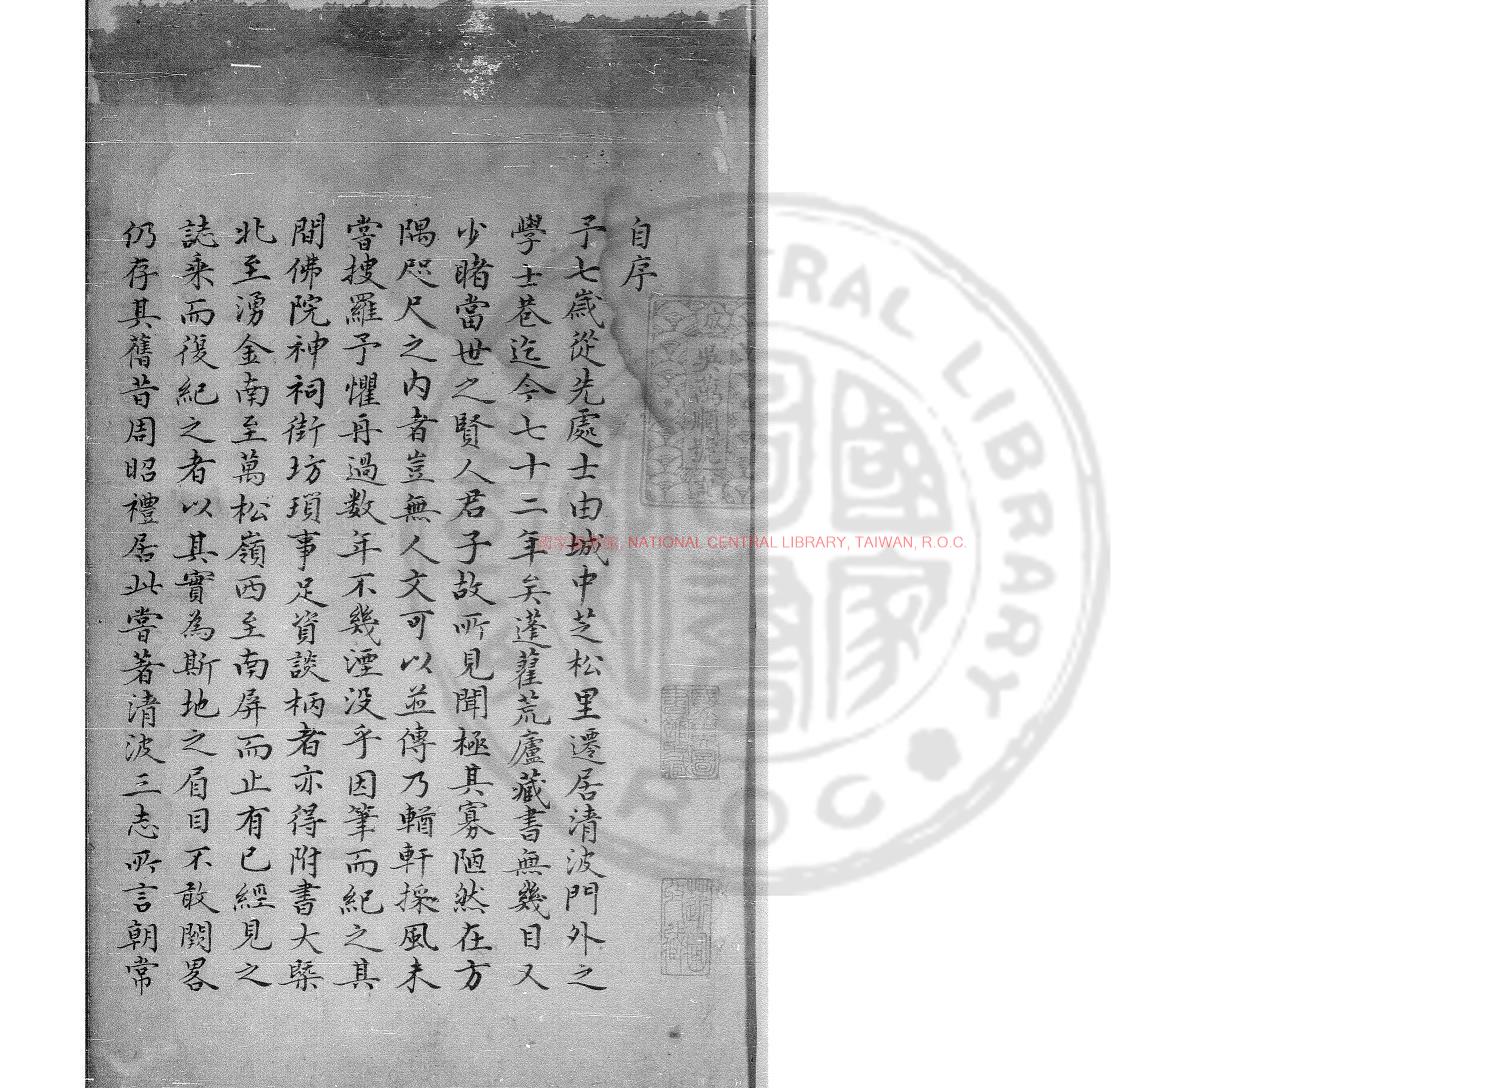 自序
予七歲從先處士由城中芝松里遷居清波門外之
學士巷迄今七十二年矣蓬藋荒廬藏書無幾目又
少睹當世之賢人君子故所見聞極其寡陋然在方
隅咫尺之内者豈無人文可以並傳乃輶軒採風未
嘗搜羅予懼再過数年不幾湮没乎因筆而紀之其
間佛院神祠街坊瑣事足資談柄者亦得附書大槩
北至湧金南至萬松嶺西至南屏而止有已經見之
誌乘而復紀之者以其實為斯地之眉目不敢闕畧
仍存其舊昔周昭禮居此嘗著清波三志所言朝常
國家圖書館, NATIONAL CENTRAL LIBRARY, TAIWAN, R.O.C.